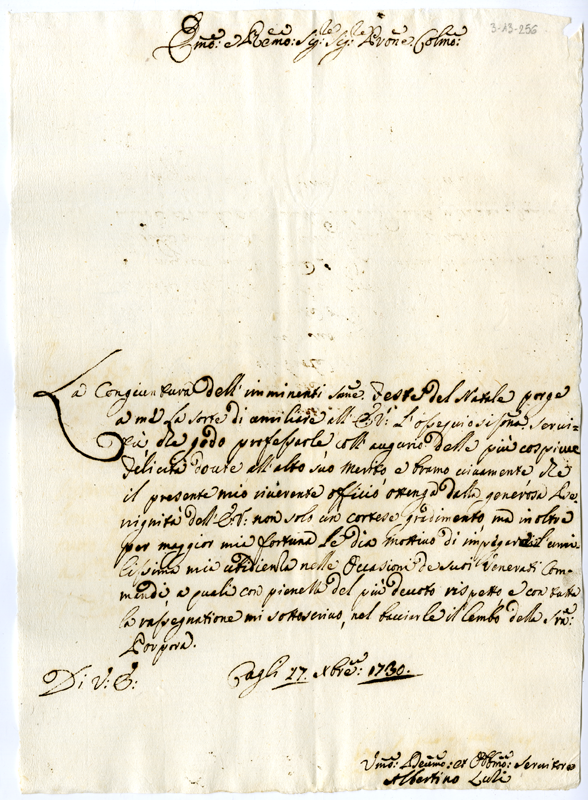 3-13-256
Emo: e Remo: Sig:re Sig:re Prone: Colmo:
La Congiuntura dell'imminenti Sme. Feste del Natale porge
a me la sorte di umiliare all'E.V: l'ossequiosissma servi-
tù che godo professarle coll augurio delle più cospicue
felicità dovute all'alto suo merito, e bramo vivamente che
il presente mio riverente officio ottenga dalla generosa Be-
nignità dell'E.V: non solo un cortese gradimento, ma inoltre
per maggior mia fortuna le dia mottivo di impiegare l'umi
lissima mia ubidienza nelle Occasioni de suoi Venerati Com-
mandi a quali con pienezza del più devoto rispetto e con tutta
la rassegnatione mi sottoscrivo, nel bacciarle il lembo della Sra:
Porpora.
Di V: E:
Cagli 27. Xbre: 1730.
Vmo: Devmo: et Obbmo: Servitore
Albertino